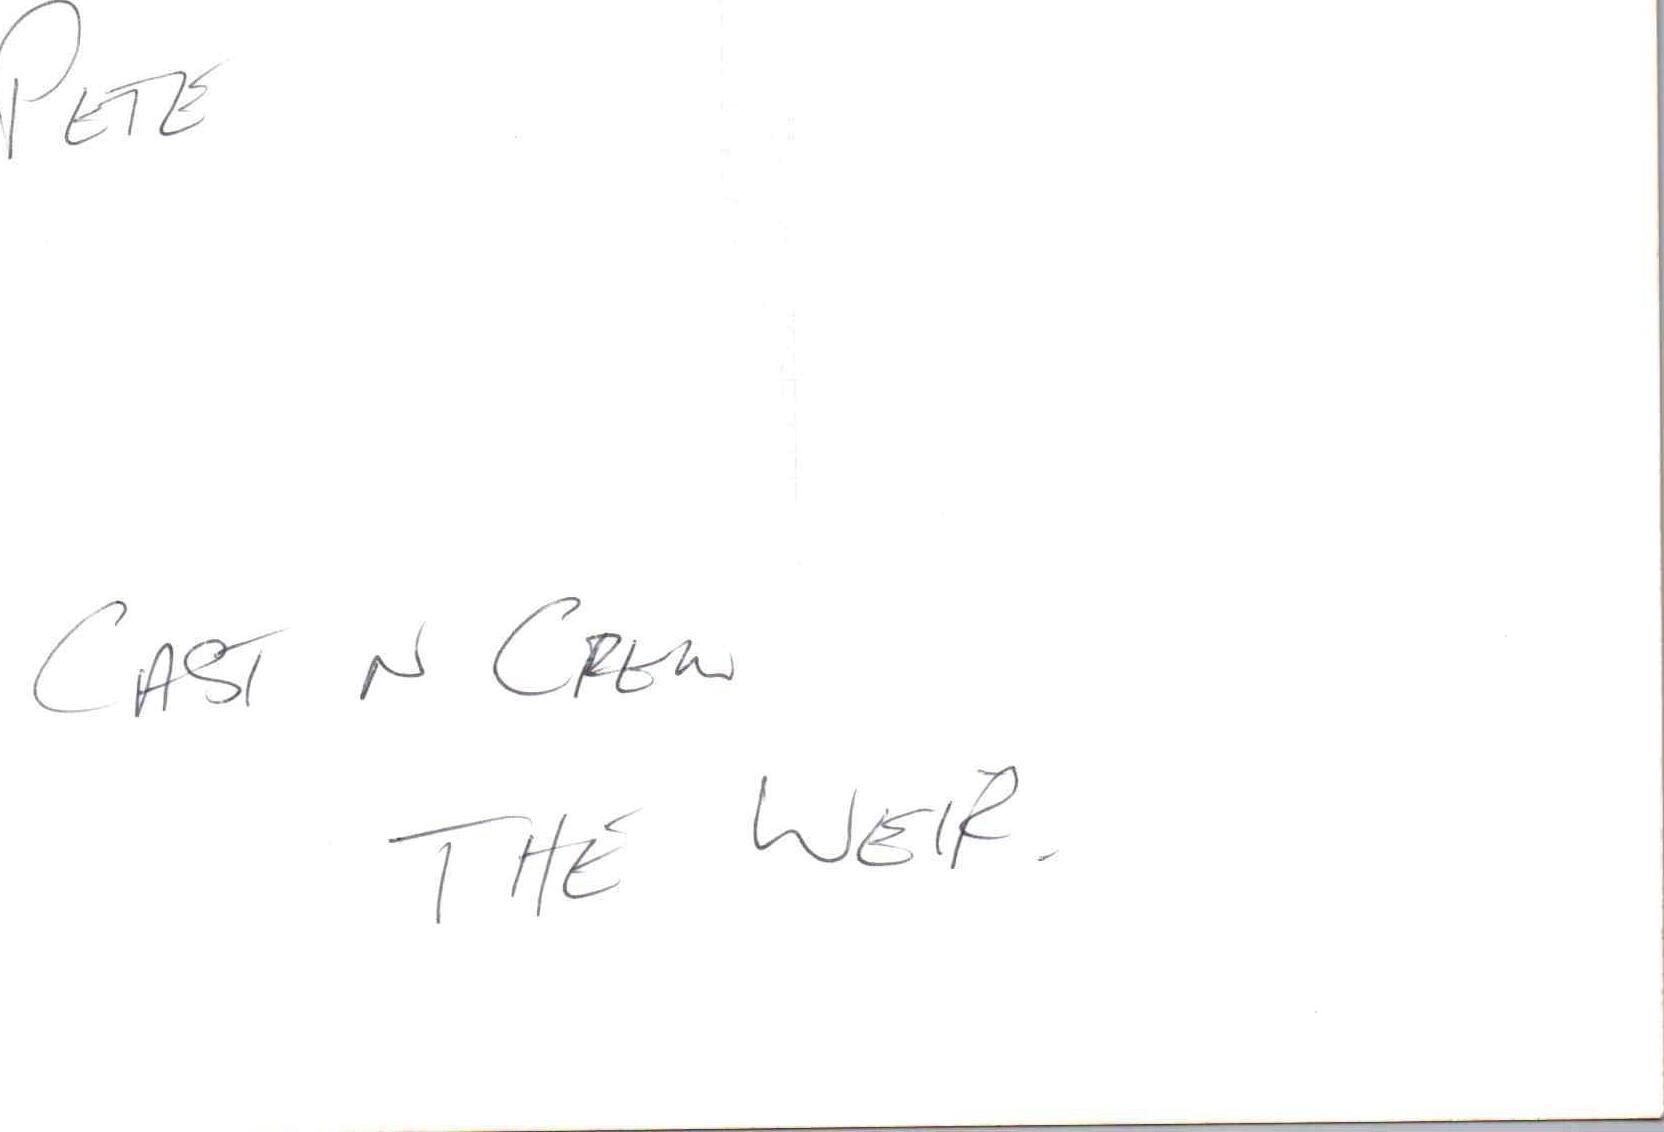 PETE
CAST N CREW
THE WEIR.